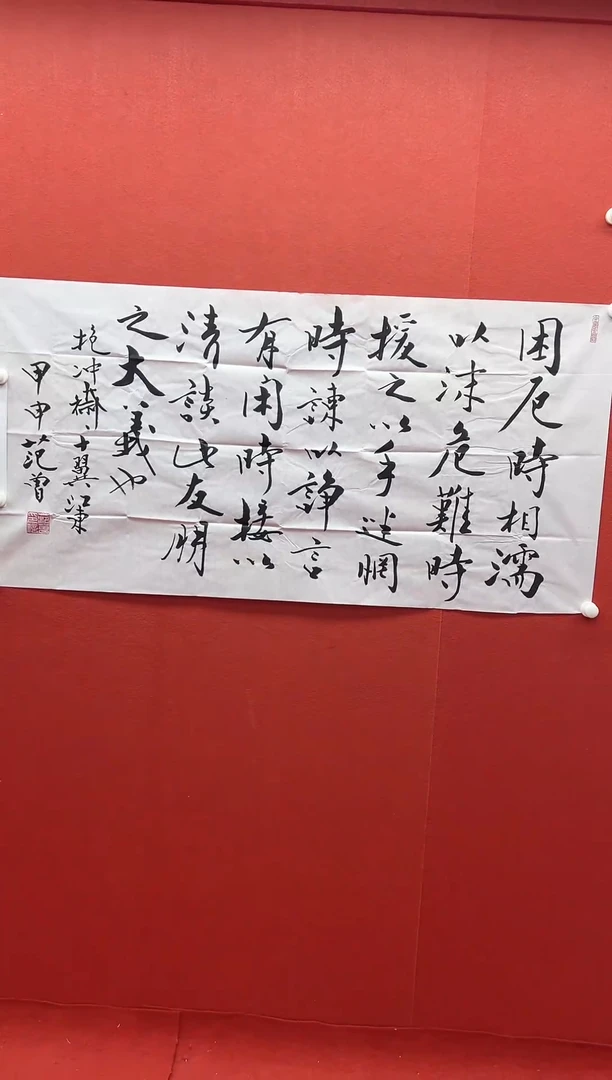 困厄時相濡
以沫危難時
援之以手迷惘
時諫以諍言
有困時接以
清談此友朋
之大義也
抱冲齋十翼江東
甲申范曾